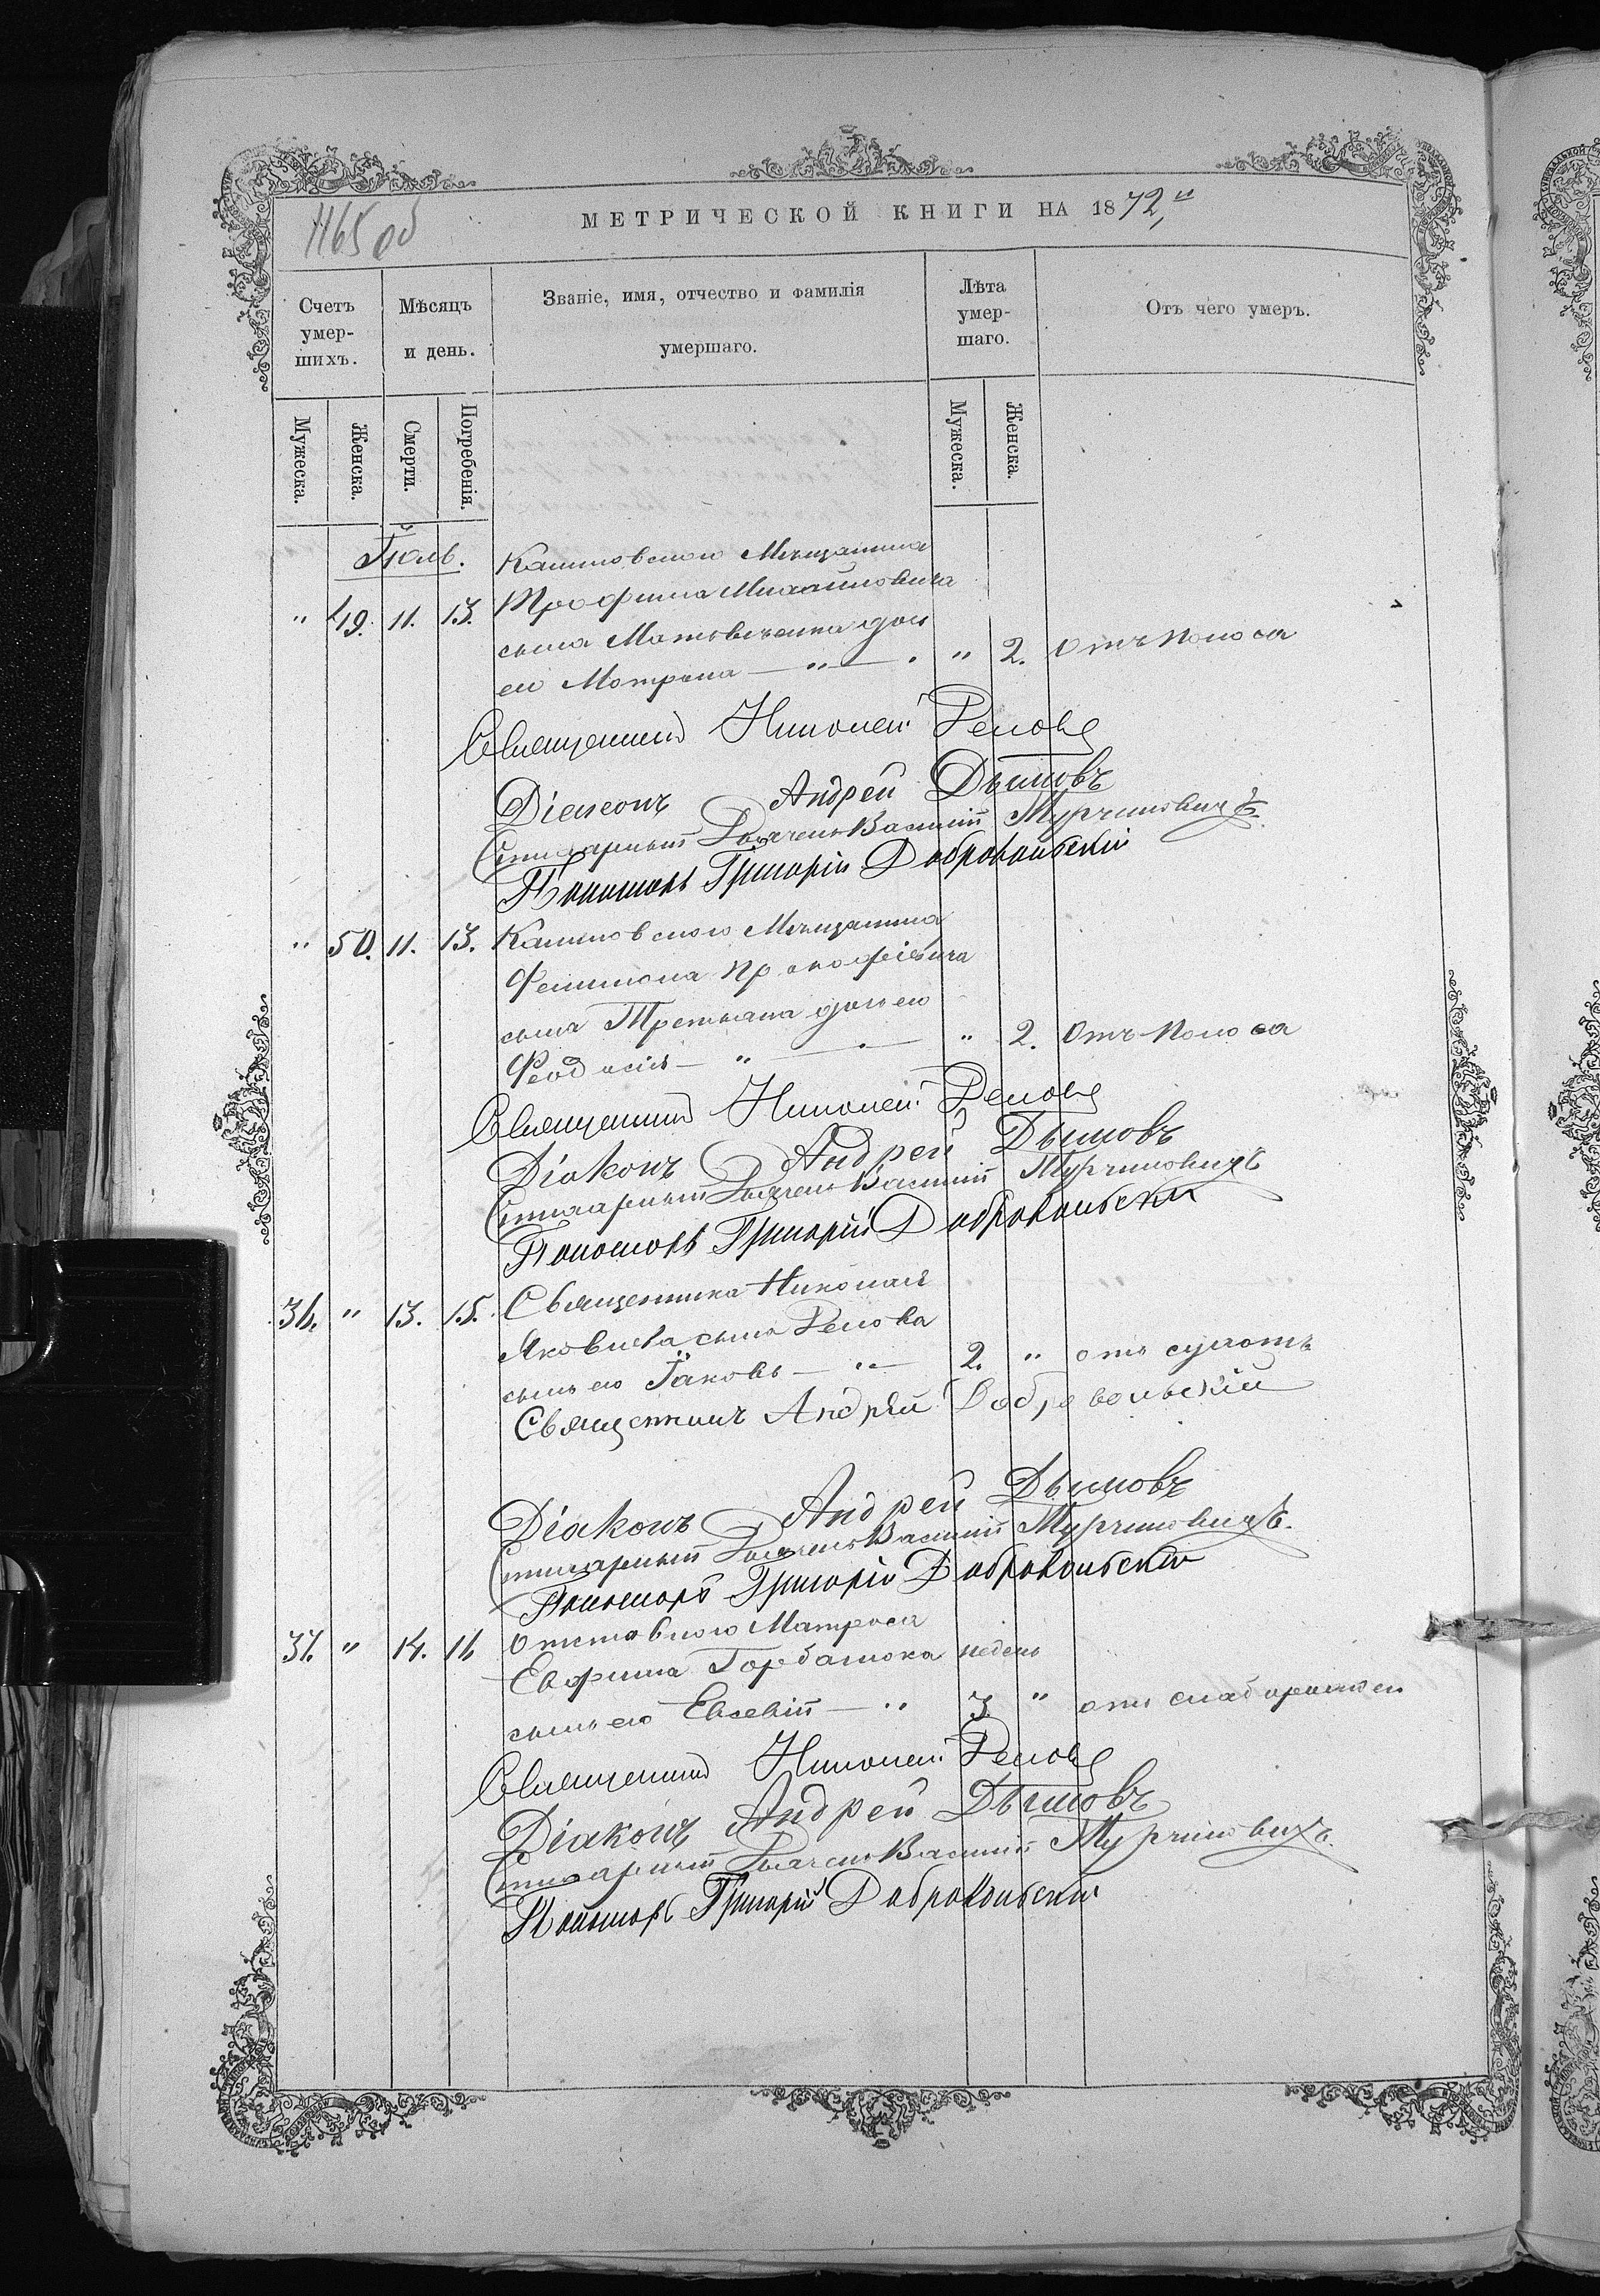 МЕТРИЧЕСКОЙ КНИГИ НА 1872,
465 об
Счетъ умер-шихъ.
Мѣсяцъ и день.
Званіе, имя, отчество и фамилія умершаго.
Лѣта умер-шаго.
Отъ чего умеръ.
Мужеска.
Женска.
Смерти.
Погребенія.
Мужеска.
Женска.
Іюль.
Мѣщанина
" 49. 11. 13. Трофима Михайловича
сына Матвѣенка дочь
его Матрона — " — " 2. Отъ поноса
Священникъ Николай Реповъ
Діаконъ Андрей Дымовъ
Стихарный Дьячекъ Василій Мурчиновичъ
Пономарь Григорій Добровольскій
" 50. 11. 13. Мѣщанина
Филимона Прокофіевича
сына Третьяка дочь его
Феодосія — " — " 2. Отъ поноса
Священникъ Николай Реповъ
Діаконъ Андрей Дымовъ
Стихарный Дьячекъ Василій Мурчиновичъ
Пономарь Григорій Добровольскій
36. " 13. 15. Священника Николая
Яковлева сына Репова
сынъ его Іаковъ — " — 2. " отъ сухотъ
Священникъ Андрей Добровольскій
Діаконъ Андрей Дымовъ
Стихарный Дьячекъ Василій Мурчиновичъ.
Пономарь Григорій Добровольскій
37. " 14. 16 Отставнаго Матроса
Евфима Горбатюка недель
сынъ его Евсевій — " 3 " отъ
Священникъ Николай Реповъ
Діаконъ Андрей Дымовъ
Стихарный Дьячекъ Василій Мурчиновичъ.
Пономарь Григорій Добровольскій